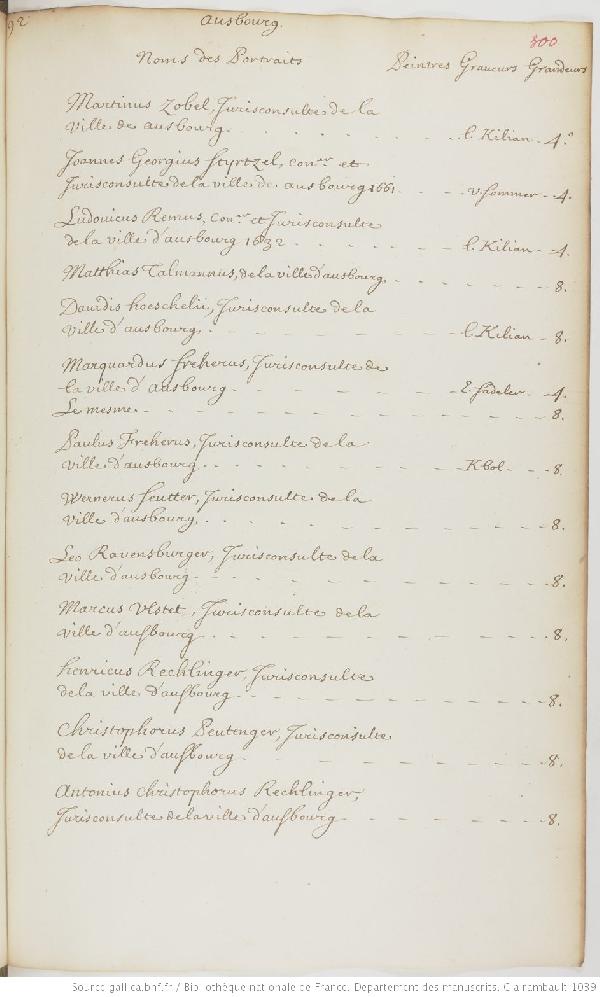 92
Ausbourg.
300
Noms des Portraits Peintres Graueurs Grandeurs
Martinus Zobel, Jurisconsulte de la
Ville de ausbourg. l. Kilian. 4.°
Joannes Georgius Styrtzel, con.er et
Jurisconsulte de la ville de ausbourg 1661. v. Sommer 4.
Ludouicus Remus, con.er et Jurisconsulte
de la ville d'ausbourg 1632 l. Kilian 4.
Matthias Talmannus, de la ville d'ausbourg. 8.
Dauidis hoeschelii, Jurisconsulte de la
ville d'ausbourg. l. Kilian 8.
Marquardus freherus, Jurisconsulte de
la ville d'Ausbourg Sadeler 4.
Le mesme. 8.
Paulus Freherus, Jurisconsulte de la
ville d'ausbourg. Kbol 8.
Wernerus feutter, Jurisconsulte de la
ville d'ausbourg. 8.
Leo Rauensburger, Jurisconsulte de la
ville d'ausbourg 8.
Marcus Vlstet, Jurisconsulte de la
ville d'ausbourg 8.
henricus Rechlinger, Jurisconsulte
de la ville d'ausbourg 8.
Christophorus Peutenger, Jurisconsulte
de la ville d'ausbourg 8.
Antonius Christophorus Rechlinger,
Jurisconsulte de la ville d'ausbourg 8.
Source gallica.bnf.fr / Bibliothèque nationale de France. Département des manuscrits. Clairambault 1039